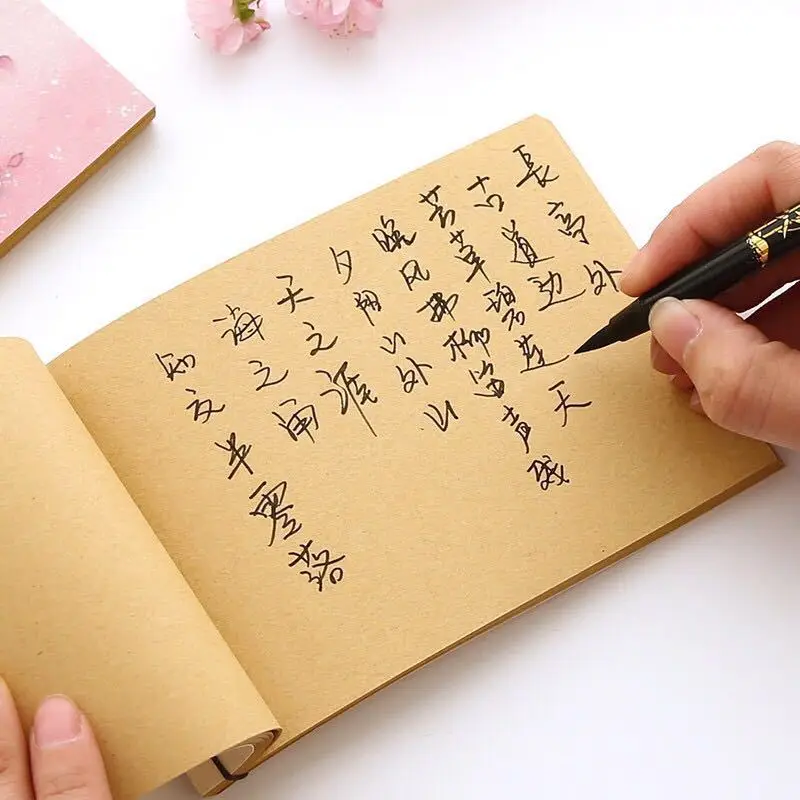 長亭外
古道边
芳草碧连天
晚风拂柳笛声残
夕阳山外山
天之涯
海之角
知交半零落